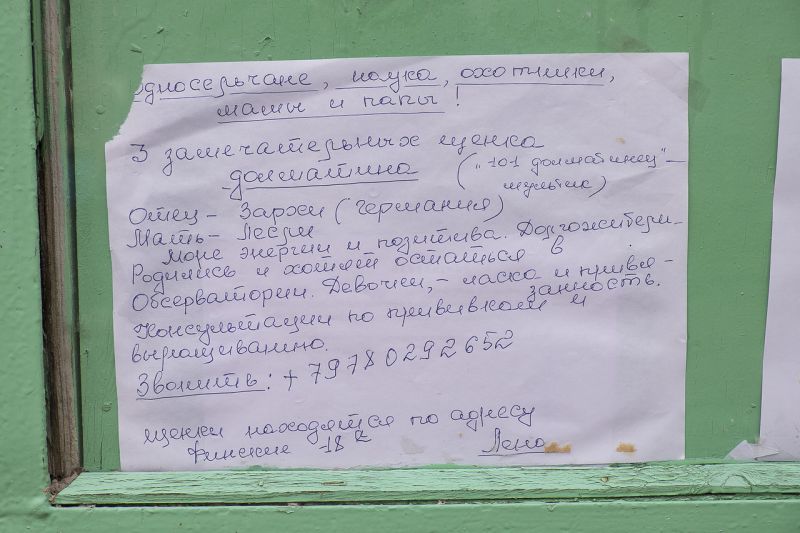 односельчане, наука, охотники,
мамы и папы!
3 замечательных щенка
долматина ("101 долматинец" –
мультик)
Отец – Зархи (Германия)
Мать – Лесли
море энергии и позитива. Долгожители –
Родились и хотят остаться в
Обсерватории. Девочки, – ласка и привя-
занность.
Консультации по прививкам и
выращиванию.
Звонить: +79780292652
щенки находятся по адресу
Финские 18
Лена